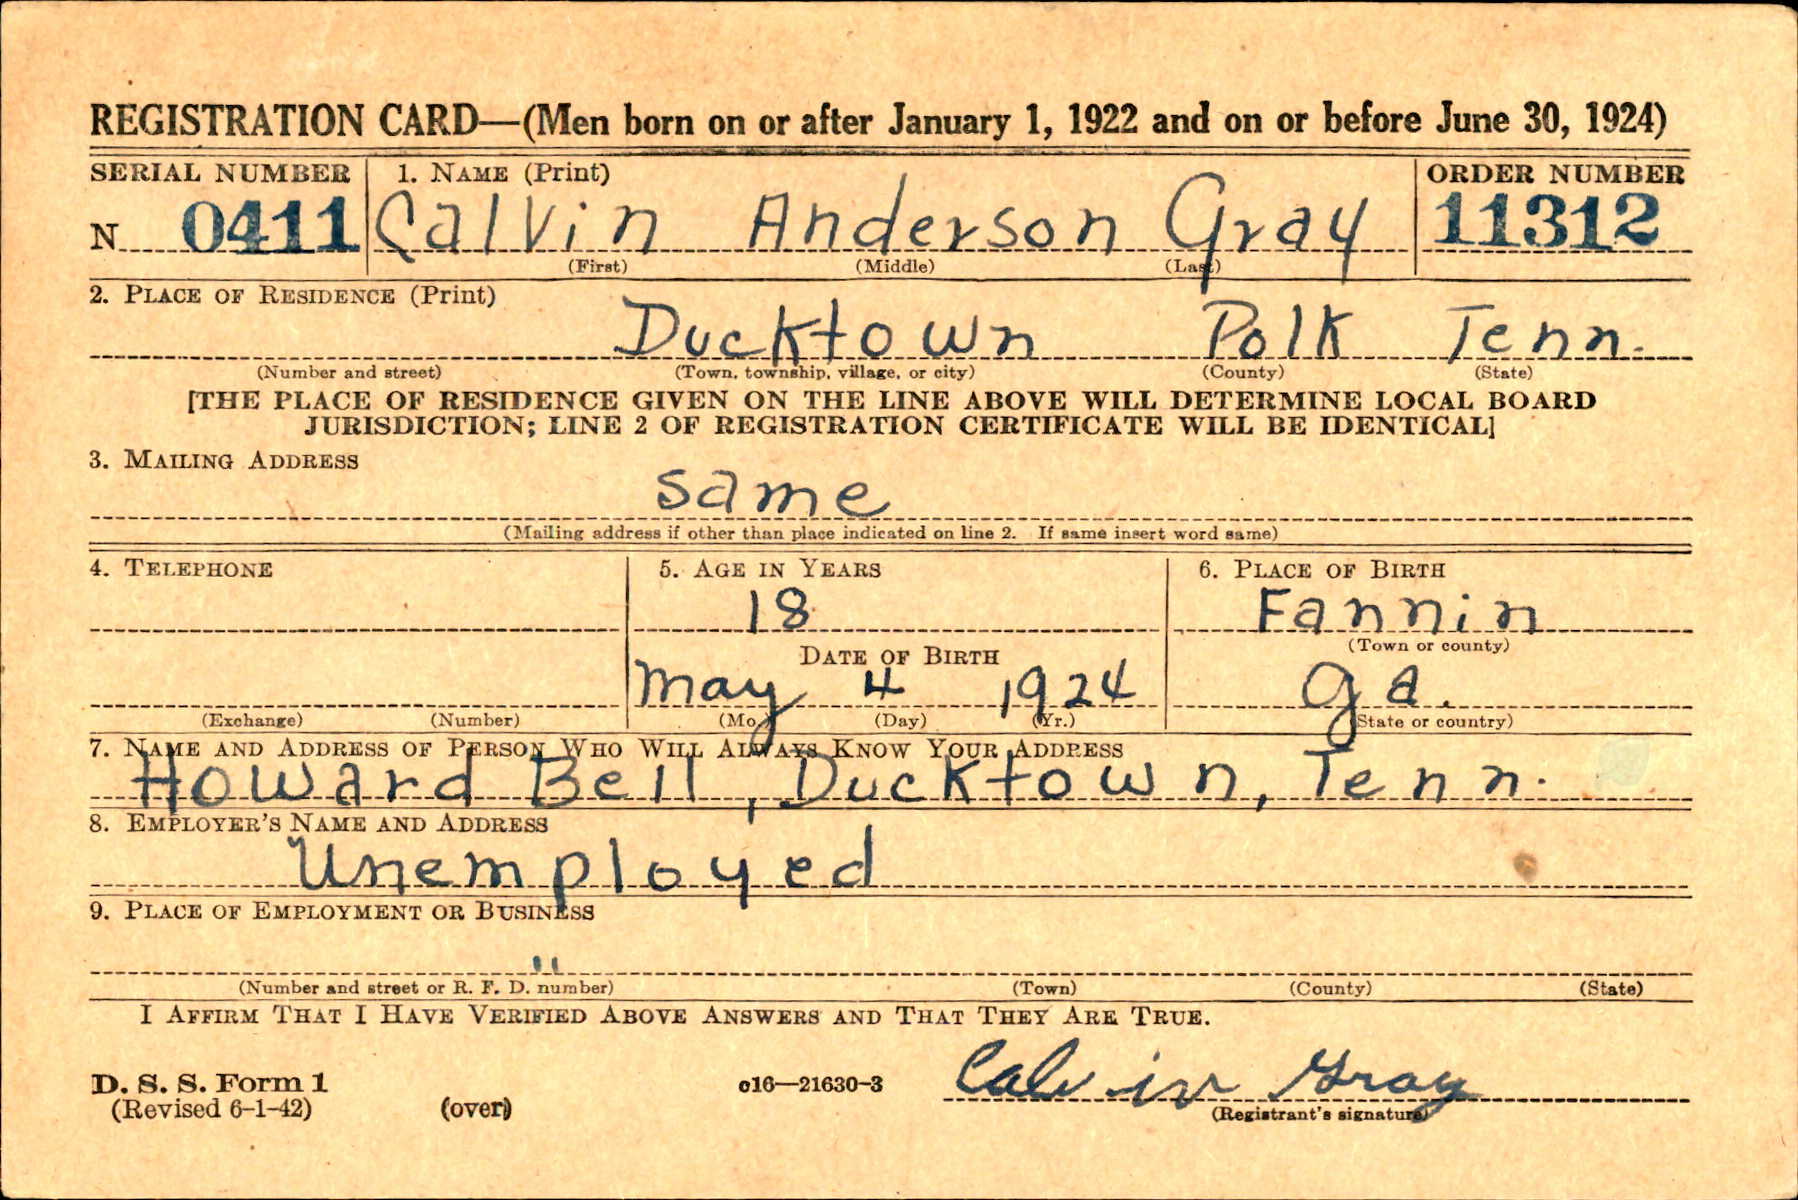 REGISTRATION CARD—(Men born on or after January 1, 1922 and on or before June 30, 1924)
SERIAL NUMBER 1. NAME (Print) ORDER NUMBER
N 0411 Calvin Anderson Gray 11312
(First) (Middle) (Last)
2. PLACE OF RESIDENCE (Print)
Ducktown Polk Tenn.
(Number and street) (Town, township, village, or city) (County) (State)
[THE PLACE OF RESIDENCE GIVEN ON THE LINE ABOVE WILL DETERMINE LOCAL BOARD
JURISDICTION; LINE 2 OF REGISTRATION CERTIFICATE WILL BE IDENTICAL]
3. MAILING ADDRESS
same
(Mailing address if other than place indicated on line 2. If same insert word same)
4. TELEPHONE 5. AGE IN YEARS 6. PLACE OF BIRTH
18 Fannin
DATE OF BIRTH (Town or county)
May 4 1924 Ga.
(Exchange) (Number) (Mo.) (Day) (Yr.) (State or country)
7. NAME AND ADDRESS OF PERSON WHO WILL ALWAYS KNOW YOUR ADDRESS
Howard Bell, Ducktown, Tenn.
8. EMPLOYER'S NAME AND ADDRESS
Unemployed
9. PLACE OF EMPLOYMENT OR BUSINESS
"
(Number and street or R. F. D. number) (Town) (County) (State)
I AFFIRM THAT I HAVE VERIFIED ABOVE ANSWERS AND THAT THEY ARE TRUE.
D. S. S. Form 1 c16—21630-3 Calvin Gray
(Revised 6-1-42) (over) (Registrant's signature)